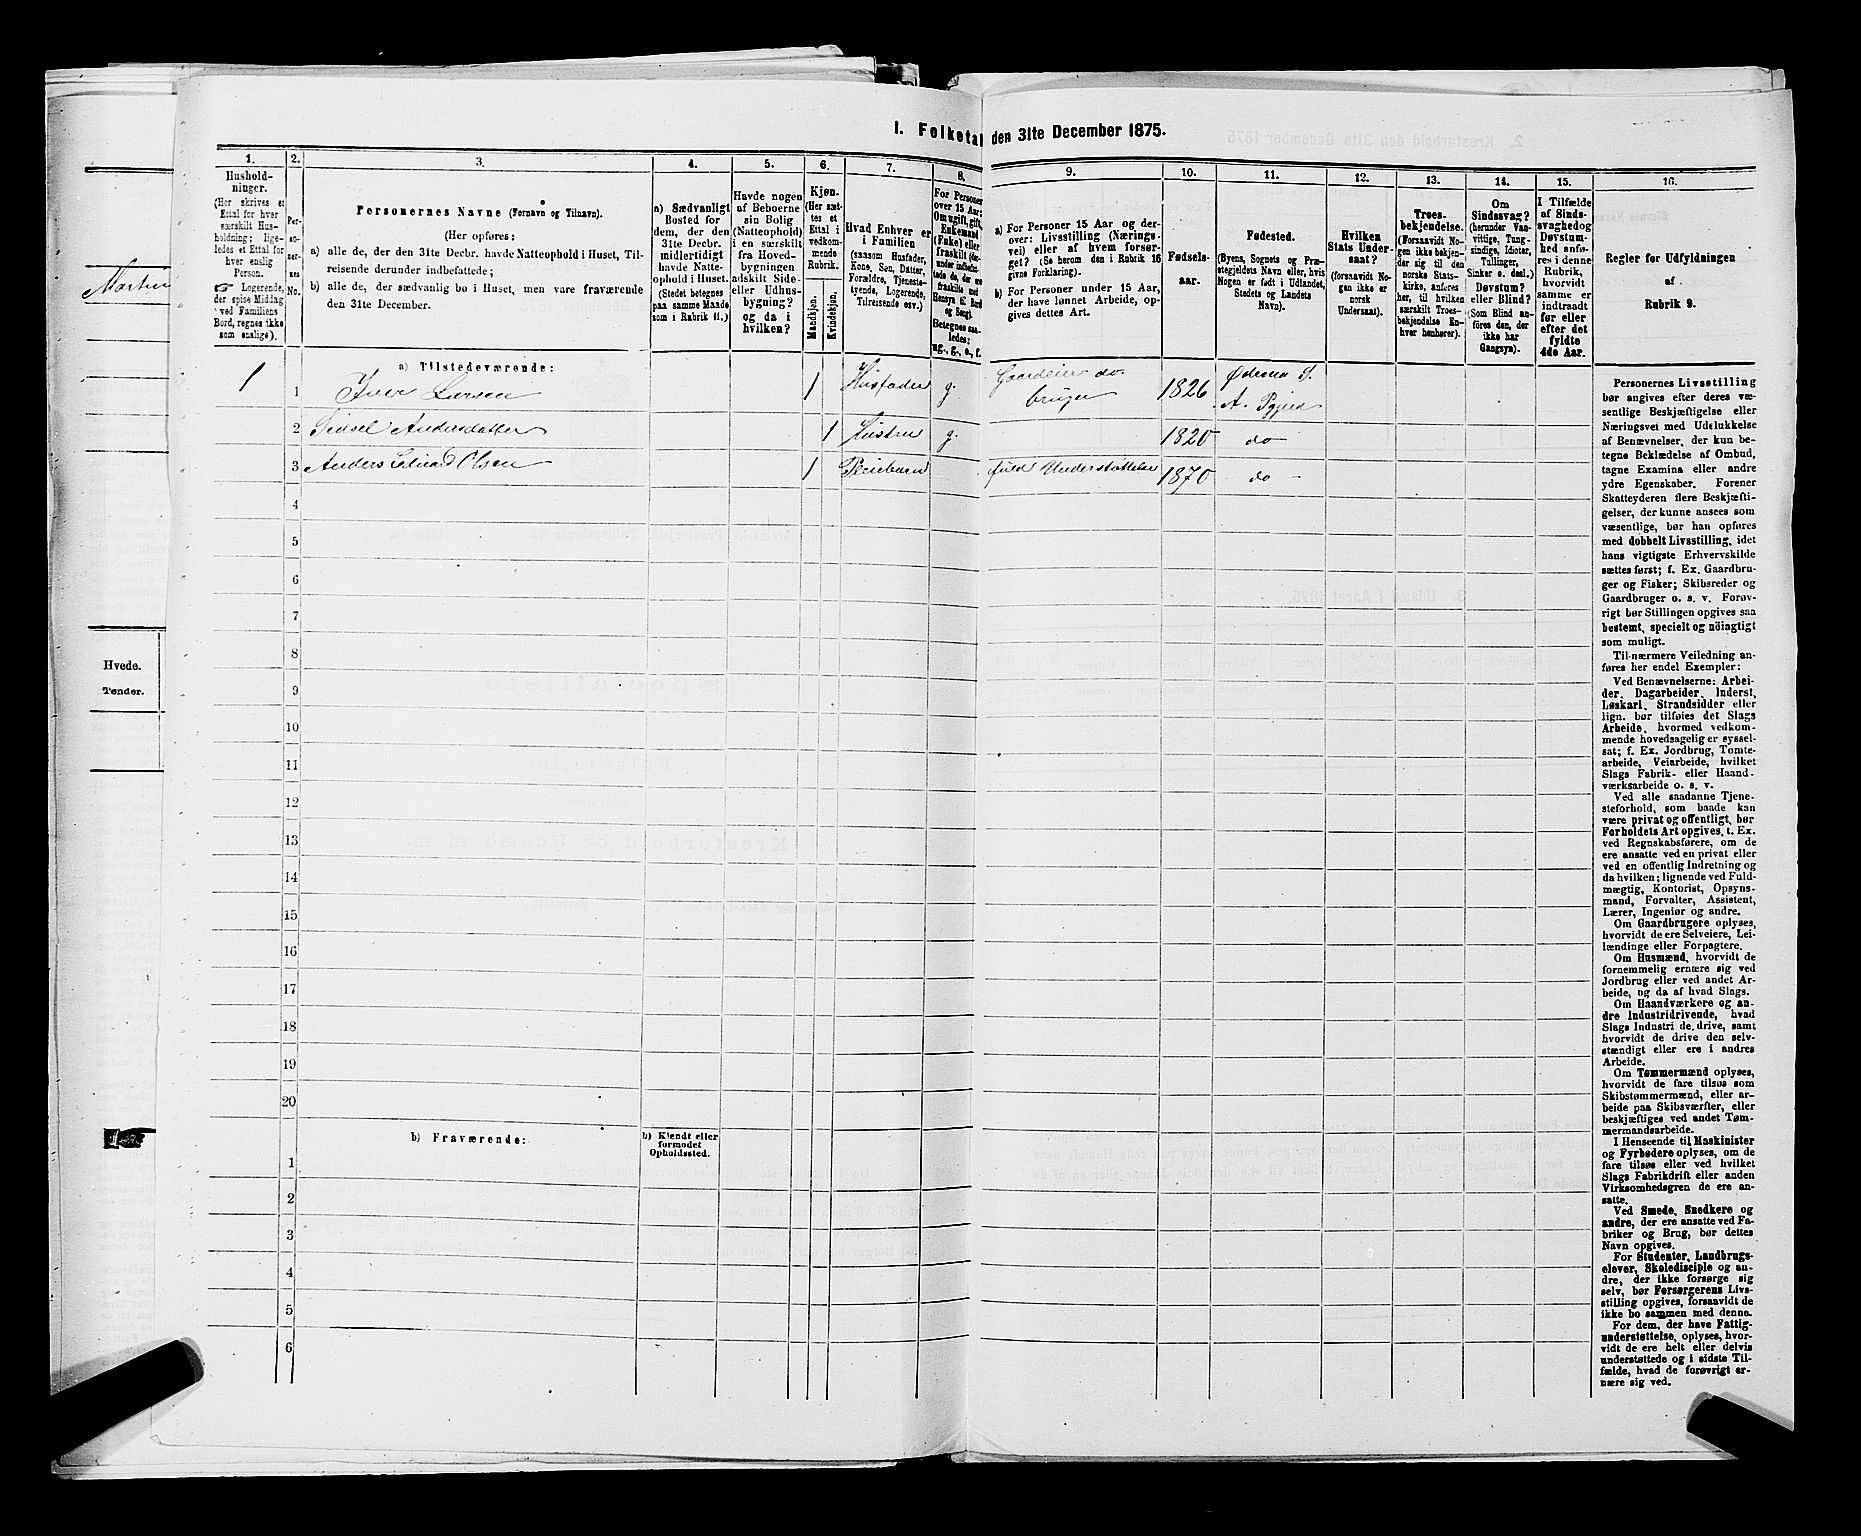 I. Folketal den 31te December 1875.
1.
2.
3.
4.
5.
6.
7.
8.
9.
10.
11.
12.
13.
14.
15.
16.
Hushold-
ninger.
(Her skrives et
Ettal for hver
særskilt Hus-
holdning; lige-
ledes et Ettal for
hver enslig
Person.
☞ Logerende,
der spise Middag
ved Familiens
Bord, regnes ikke
som enslige).
Per-
so-
ner-
nes
No.
Personernes Navne (Fornavn og Tilnavn).
(Her opføres:
a) alle de, der den 31te Decbr. havde Natteophold i Huset, Til-
reisende derunder indbefattede;
b) alle de, der sædvanlig bo i Huset, men vare fraværende
den 31te December.
a) Sædvanligt
Bosted for
dem, der den
31te Decbr.
midlertidigt
havde Natte-
ophold i Huset.
(Stedet betegnes
paa samme Maade
som i Rubrik 11.)
Havde nogen
af Beboerne
sin Bolig
(Natteophold)
i en særskilt
fra Hoved-
bygningen
adskilt Side-
eller Udhus-
bygning?
og da i
hvilken?
Kjøn.
(Her sæt-
tes et
Ettal i
vedkom-
mende
Rubrik.
Mandkjøn.
Kvindekjøn.
Hvad Enhver er
i Familien
(saasom Husfader,
Kone, Søn, Datter,
Forældre, Tjeneste-
tyende, Logerende,
Tilreisende osv.)
For Personer
over 15 Aar:
Om ugift, gift,
Enkemand
(Enke) eller
fraskilt
Betegnes saa-
ledes:
ug., g., e., f.
a) For Personer 15 Aar og der-
over: Livsstilling (Nærings-
vei) eller af hvem forsør-
get? (Se herom den i Rubrik 16
givne Forklaring).
b) For Personer under 15 Aar,
der have lønnet Arbeide, op-
gives dettes Art.
Fødsels-
aar.
Fødested.
(Byens, Sognets og Præ-
stegjeldets Navn eller, hvis
Nogen er født i Udlandet,
Stedets og Landets
Navn).
Hvilken
Stats Under-
saat?
(forsaavidt No-
gen ikke er
norsk
Undersaat).
Troes-
bekjendelse.
(Forsaavidt No-
gen ikke bekjen-
der sig til den
norske Stats-
kirke, anføres
her, til hvilken
særskilt Troes-
bekjendelse En-
hver henhører).
Om
Sindssvag?
(herunder Van-
vittige, Tung-
sindige, Idioter,
Tullinger,
Sinker o. desl.)
Døvstum?
eller Blind?
(Som Blind an-
føres den, der
ikke har
Gangsyn).
I Tilfælde
af Sinds-
svaghed og
Døvstum-
hed anfø-
res i denne
Rubrik,
hvorvidt
samme er
indtraadt
før eller
efter det
fyldte
4de Aar.
Regler for Udfyldningen
af
Rubrik 9.
a) Tilstedeværende:
1 1 Iver Larsen 1 Husfader g. Gaardeier do bruger 1826
2 Sidsel Andersdatter 1 Hustru g. 1820 do
3 Anders Eduard Olsen 1 Pleiebarn Fuld Understøttelse 1870 do
4
5
6
7
8
9
10
11
12
13
14
15
16
17
18
19
20
b) Fraværende:
b) Kjendt eller
formodet
Opholdssted.
1
2
3
4
5
6
Personernes Livsstilling
bør angives efter deres væ-
sentlige Beskjæftigelse eller
Næringsvei med Udelukkelse
af Benævnelser, der kun be-
tegne Beklædelse af Ombud,
tagne Examina eller andre
ydre Egenskaber. Forener
Skatteyderen flere Beskjæfti-
gelser, der kunne ansees som
væsentlige, bør han opføres
med dobbelt Livsstilling, idet
hans vigtigste Erhvervskilde
sættes først; f. Ex. Gaardbru-
ger og Fisker; Skibsreder og
Gaardbruger o. s. v. Forøv-
rigt bør Stillingen opgives saa
bestemt, specielt og nöiagtigt
som muligt.
Til nærmere Veiledning an-
føres her endel Exempler:
Ved Benævnelserne: Arbei-
der, Dagarbeider, Inderst,
Løskarl, Strandsidder eller
lign. bør tilføies det Slags
Arbeide, hvormed vedkom-
mende hovedsagelig er syssel-
sat; f. Ex. Jordbrug, Tomte-
arbeide, Veiarbeide, hvilket
Slags Fabrik- eller Haand-
værksarbeide o. s. v.
Ved alle saadanne Tjene-
steforhold, som baade kan
være privat og offentligt, bør
Forholdets Art opgives, t. Ex.
ved Regnskabsførere, om de
ere ansatte ved en privat eller
ved en offentlig Indretning og
da hvilken; lignende ved Fuld-
mægtig, Kontorist, Opsyns-
mand, Forvalter, Assistent,
Lærer, Ingeniør og andre.
Om Gaardbrugere oplyses,
hvorvidt de ere Selveiere, Lei-
lændinge eller Forpagtere.
Om Husmænd, hvorvidt de
fornemmelig ernære sig ved
Jordbrug eller ved andet Ar-
beide, og da af hvad Slags.
Om Haandværkere og an-
dre Industridrivende, hvad
Slags Industri de drive, samt
hvorvidt de drive den selv-
stændigt eller ere i andres
Arbeide.
Om Tømmermænd oplyses,
hvorvidt de fare tilsøs som
Skibstømmermænd, eller ar-
beide paa Skibsværfter, eller
beskjæftiges ved andet Tøm-
mermandsarbeide.
I Henseende til Maskinister
og Fyrbødere oplyses, om de
fare tilsøs eller ved hvilket
Slags Fabrikdrift eller anden
Virksomhedsgren de ere an-
satte.
Ved Smede, Snedkere og
andre, der ere ansatte ved Fa-
briker og Brug, bør dettes
Navn opgives.
For Studenter, Landbrugs-
elever, Skoledisciple og an-
dre, der ikke forsørge sig
selv, bør Forsørgerens Livs-
stilling opgives, forsaavidt de
ikke bo sammen med denne.
For dem, der have Fattig-
understøttelse, oplyses, hvor-
vidt de ere helt eller delvis
understøttede og i sidste Til-
fælde, hvad de forøvrigt er-
nære sig ved.
Hvede.
Tønder.